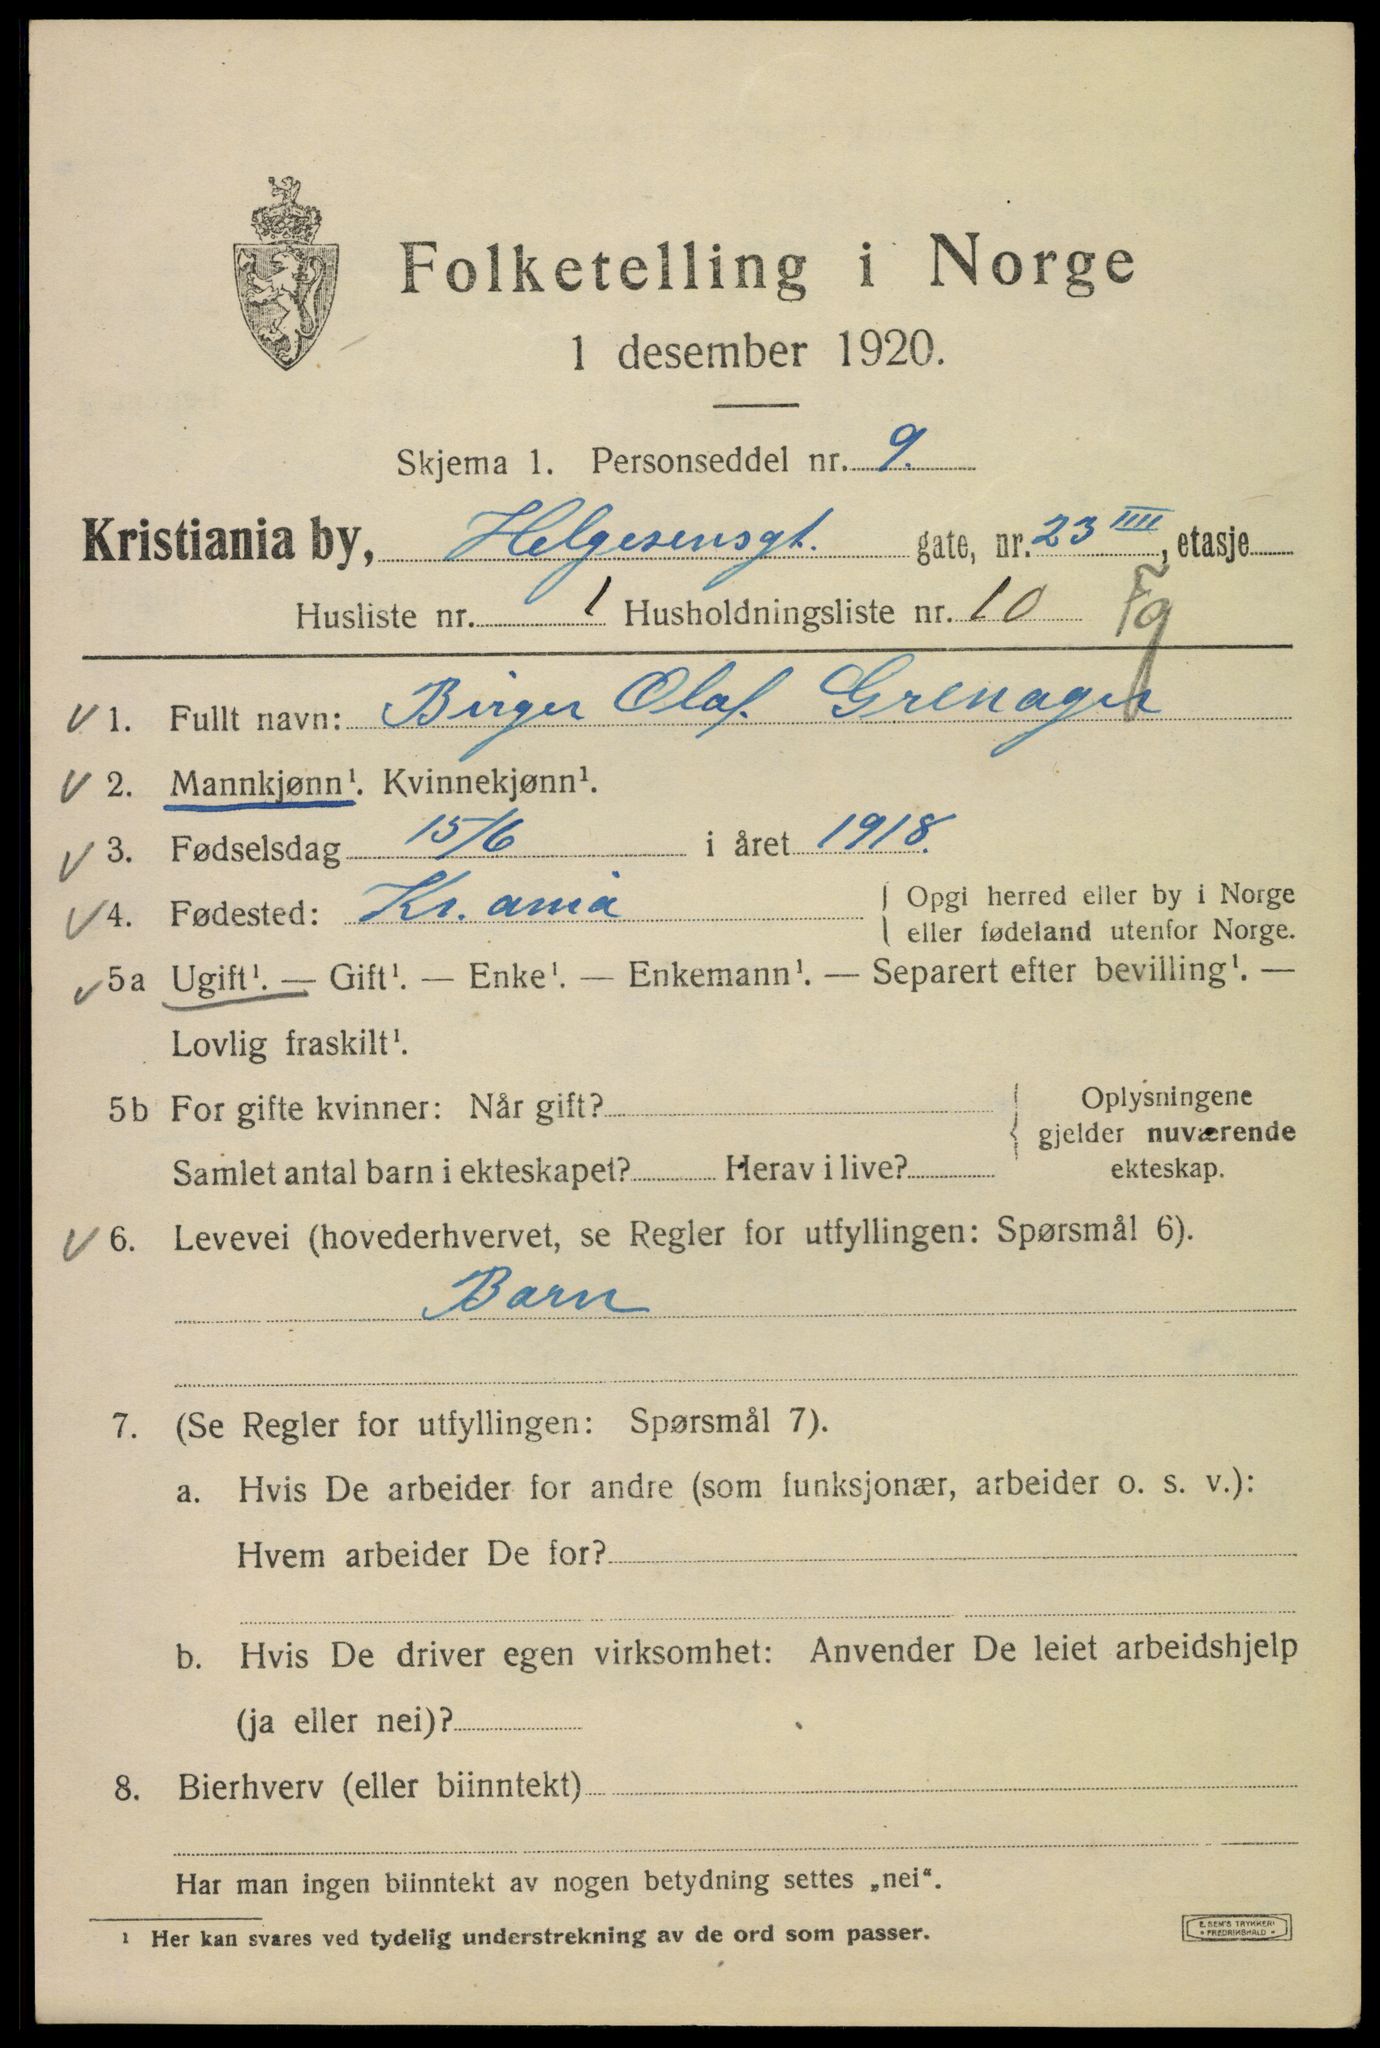 Folketelling i Norge
1 desember 1920.
Skjema 1. Personseddel nr. 9.
Kristiania by, Helgesensgt. gate, nr. 23 IIII, etasje
Husliste nr. 1 Husholdningsliste nr. 10
Fg
v 1. Fullt navn: Birger Olaf. Grenager
v 2. Mannkjønn¹. Kvinnekjønn¹.
v 3. Fødselsdag 15/6 i året 1918.
v 4. Fødested: Kr.ania { Opgi herred eller by i Norge
eller fødeland utenfor Norge.
v 5a Ugift¹. — Gift¹. — Enke¹. — Enkemann¹. — Separert efter bevilling¹. —
Lovlig fraskilt¹.
5b For gifte kvinner: Når gift? { Oplysningene
gjelder nuværende
Samlet antal barn i ekteskapet? Herav i live? ekteskap.
v 6. Levevei (hovederhvervet, se Regler for utfyllingen: Spørsmål 6).
Barn
7. (Se Regler for utfyllingen: Spørsmål 7).
a. Hvis De arbeider for andre (som funksjonær, arbeider o. s. v.):
Hvem arbeider De for?
b. Hvis De driver egen virksomhet: Anvender De leiet arbeidshjelp
(ja eller nei)?
8. Bierhverv (eller biinntekt)
Har man ingen biinntekt av nogen betydning settes „nei“.
¹ Her kan svares ved tydelig understrekning av de ord som passer.
E. SEM'S TRYKKERI
• FREDRIKSHALD •